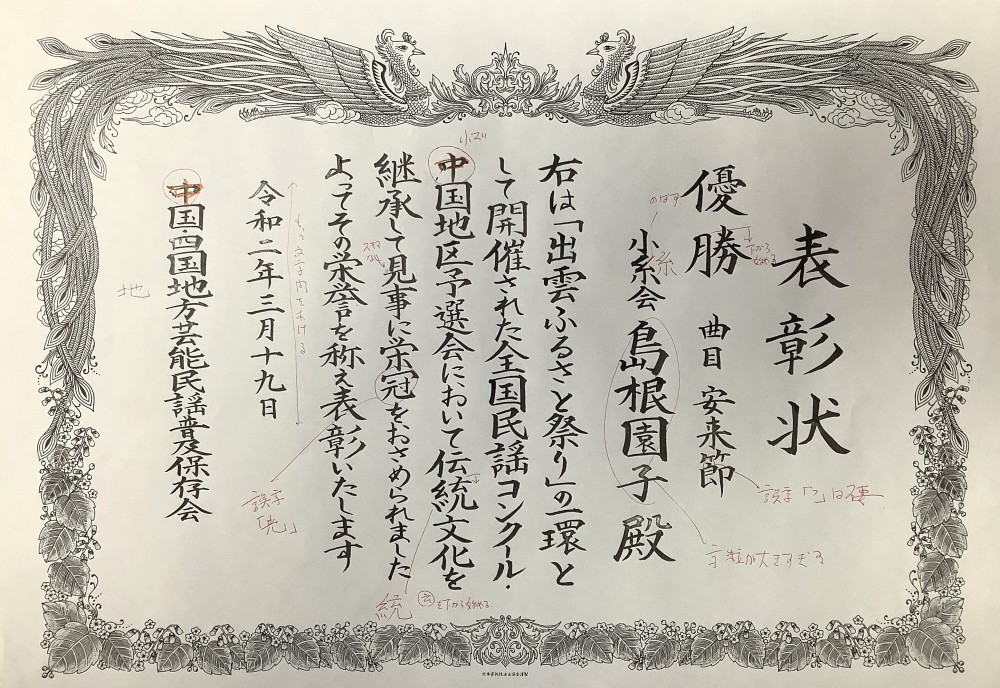 表彰状
優勝 曲目 安来節
小糸会 島根園子 殿
右は「出雲ふるさと祭り」の一環と
して開催された全国民謡コンクール・
中国地区予選会において伝統文化を
継承して見事に栄冠をおさめられました
よってその栄誉を称え表彰いたします
令和二年三月十九日
中国・四国地方芸能民謡普及保存会
のばす
糸
下から始める
誤字「つ」は
字粒が大きすぎる
小さい
統
を下から始める
誤字
「光」
もっと文字間をあける
地